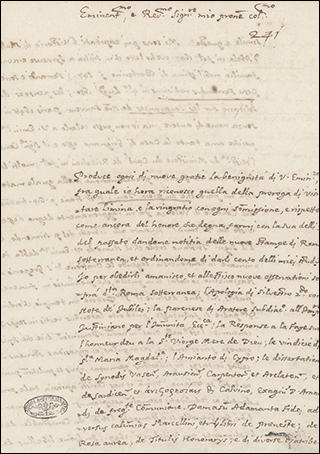 Eminent.mo e Rev.mo Sign.re mio prone col.mo
241
Produce ogni dì nuove gratie la benignità di V. Emin.
fra quale io hora riconosco quella della proroga di
e la ringratio con ogni somissione, e rispetto
come ancora del honore che degna farmi con la sua delli
del passato dandome notitia delle nuove stampe di Roma
sotterranea, et ordinandome di darli conto delli miei studij
Io per obedirli amanisco et allestisco nuove osservationi so
pra d.ta Roma sotterranea; l'Apologia di Silvestro 2.do co
Note de Iubileo; la parenesi di Aratore subdiac.
Iustiniano per l'immunità la Response a
l'honneur deu a la S.te Vierge Mere de Dieu; le vindicie di
S.ta Maria Magdal.; l'Amianto di Cypro; le dissertationi
de Synodis Vasen. Arausicn. Carpentor. et Arelaten. et
de Calvino,
Communione, Damasi Adamanta fide, ad
versus calumnias Marcellini et libri de
Rosa aurea; de Titulis Honorarijs; e di diverse